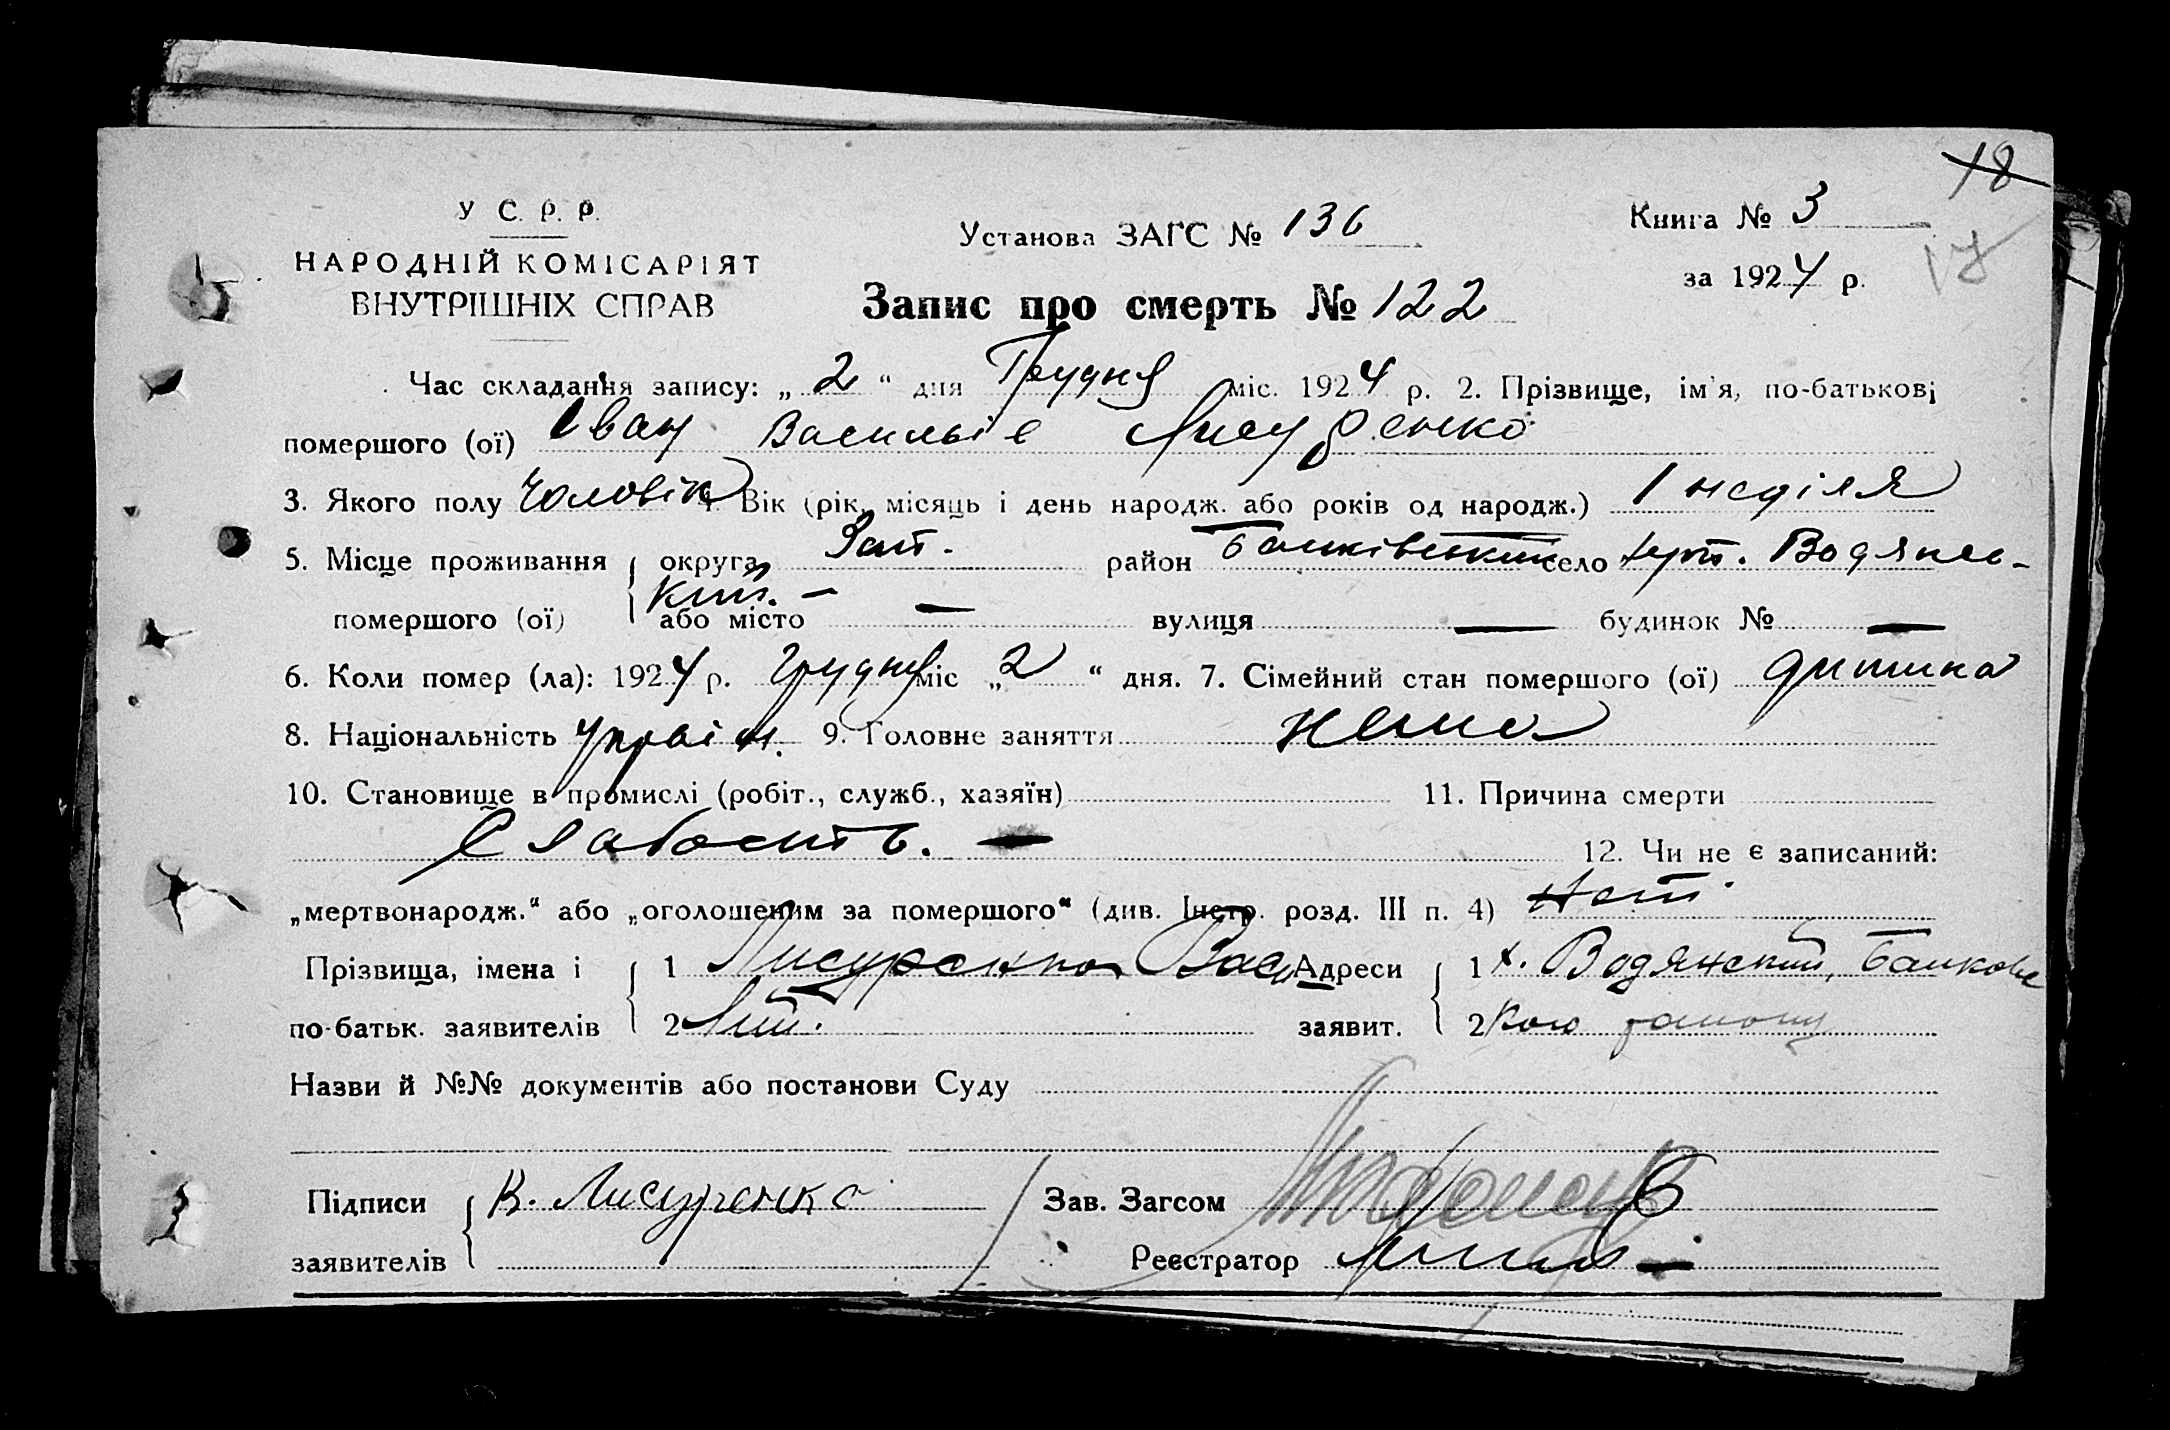 18
У С. Р. Р.
НАРОДНІЙ КОМІСАРІЯТ
ВНУТРІШНІХ СПРАВ
Установа ЗАГС № 136
Книга № 3
за 1924 р.
17
Запис про смерть № 122
Час складання запису: „ 2 “ дня Грудня міс. 1924 р. 2. Прізвище, ім'я, по-батькові
помершого (ої) Іван Васильів Лисуренко
3. Якого полу Чоловік 4. Вік (рік, місяць і день народж. або років од народж.) 1 неділя
5. Місце проживання округа Зап. район село хут. Водянсь-
кий. –
помершого (ої) або місто — вулиця — будинок № —
6. Коли помер (ла): 1924 р. Грудня міс „2 “ дня. 7. Сімейний стан помершого (ої) дитина
8. Національність Україн. 9. Головне заняття нема
10. Становище в промислі (робіт., служб., хазяїн) 11. Причина смерти
Слабость. — 12. Чи не є записаний:
„мертвонародж.“ або „оголошеним за помершого“ (див. Інстр. розд. III п. 4) Нет.
Прізвища, імена і 1 Лисуренко Вас Адреси 1 х. Водянский, Банковс
по-батьк. заявителів 2 заявит. 2 кого району
Назви й №№ документів або постанови Суду
Підписи В. Лисуренко Зав. Загсом
заявителів Реєстратор